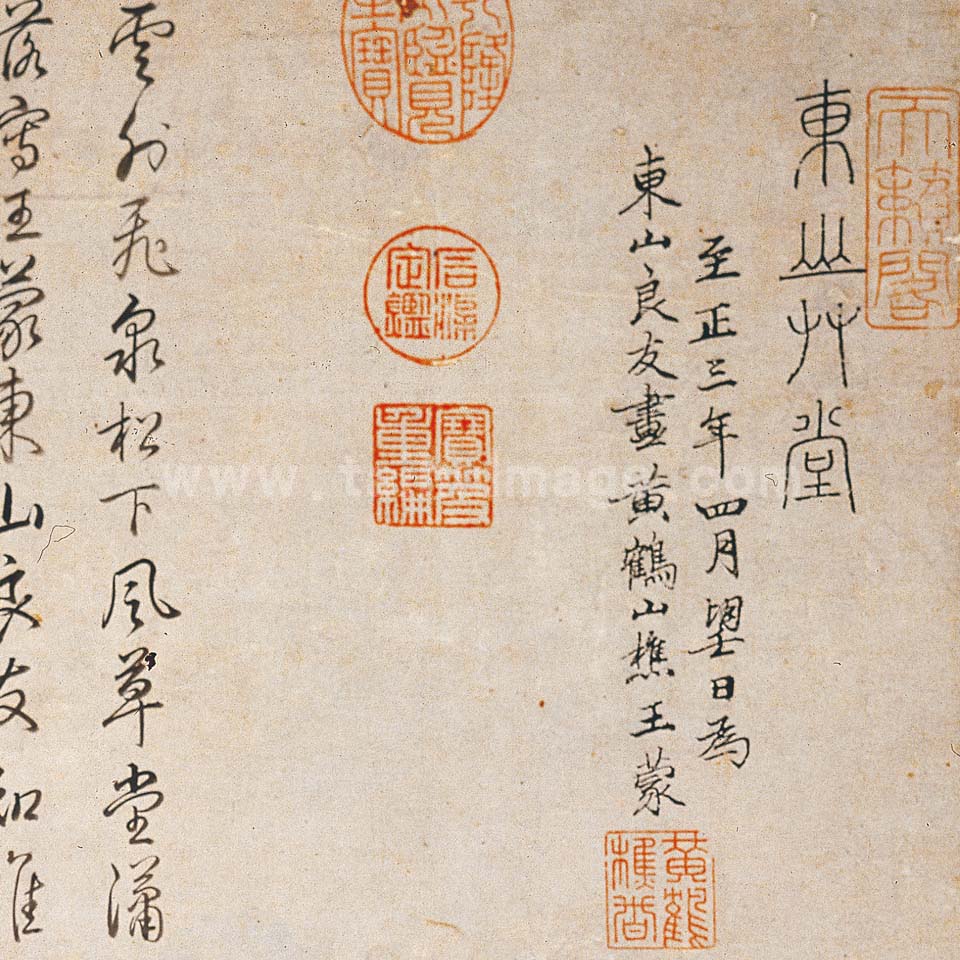 天籟閣
東山艸堂
至正三年四月望日為
東山良友畫黃鶴山樵王蒙
黃鶴樵者
乾隆御覽之寶
石渠定鑑
寶笈重編
雲外飛泉松下風草堂瀟
落寫王蒙東山良友知